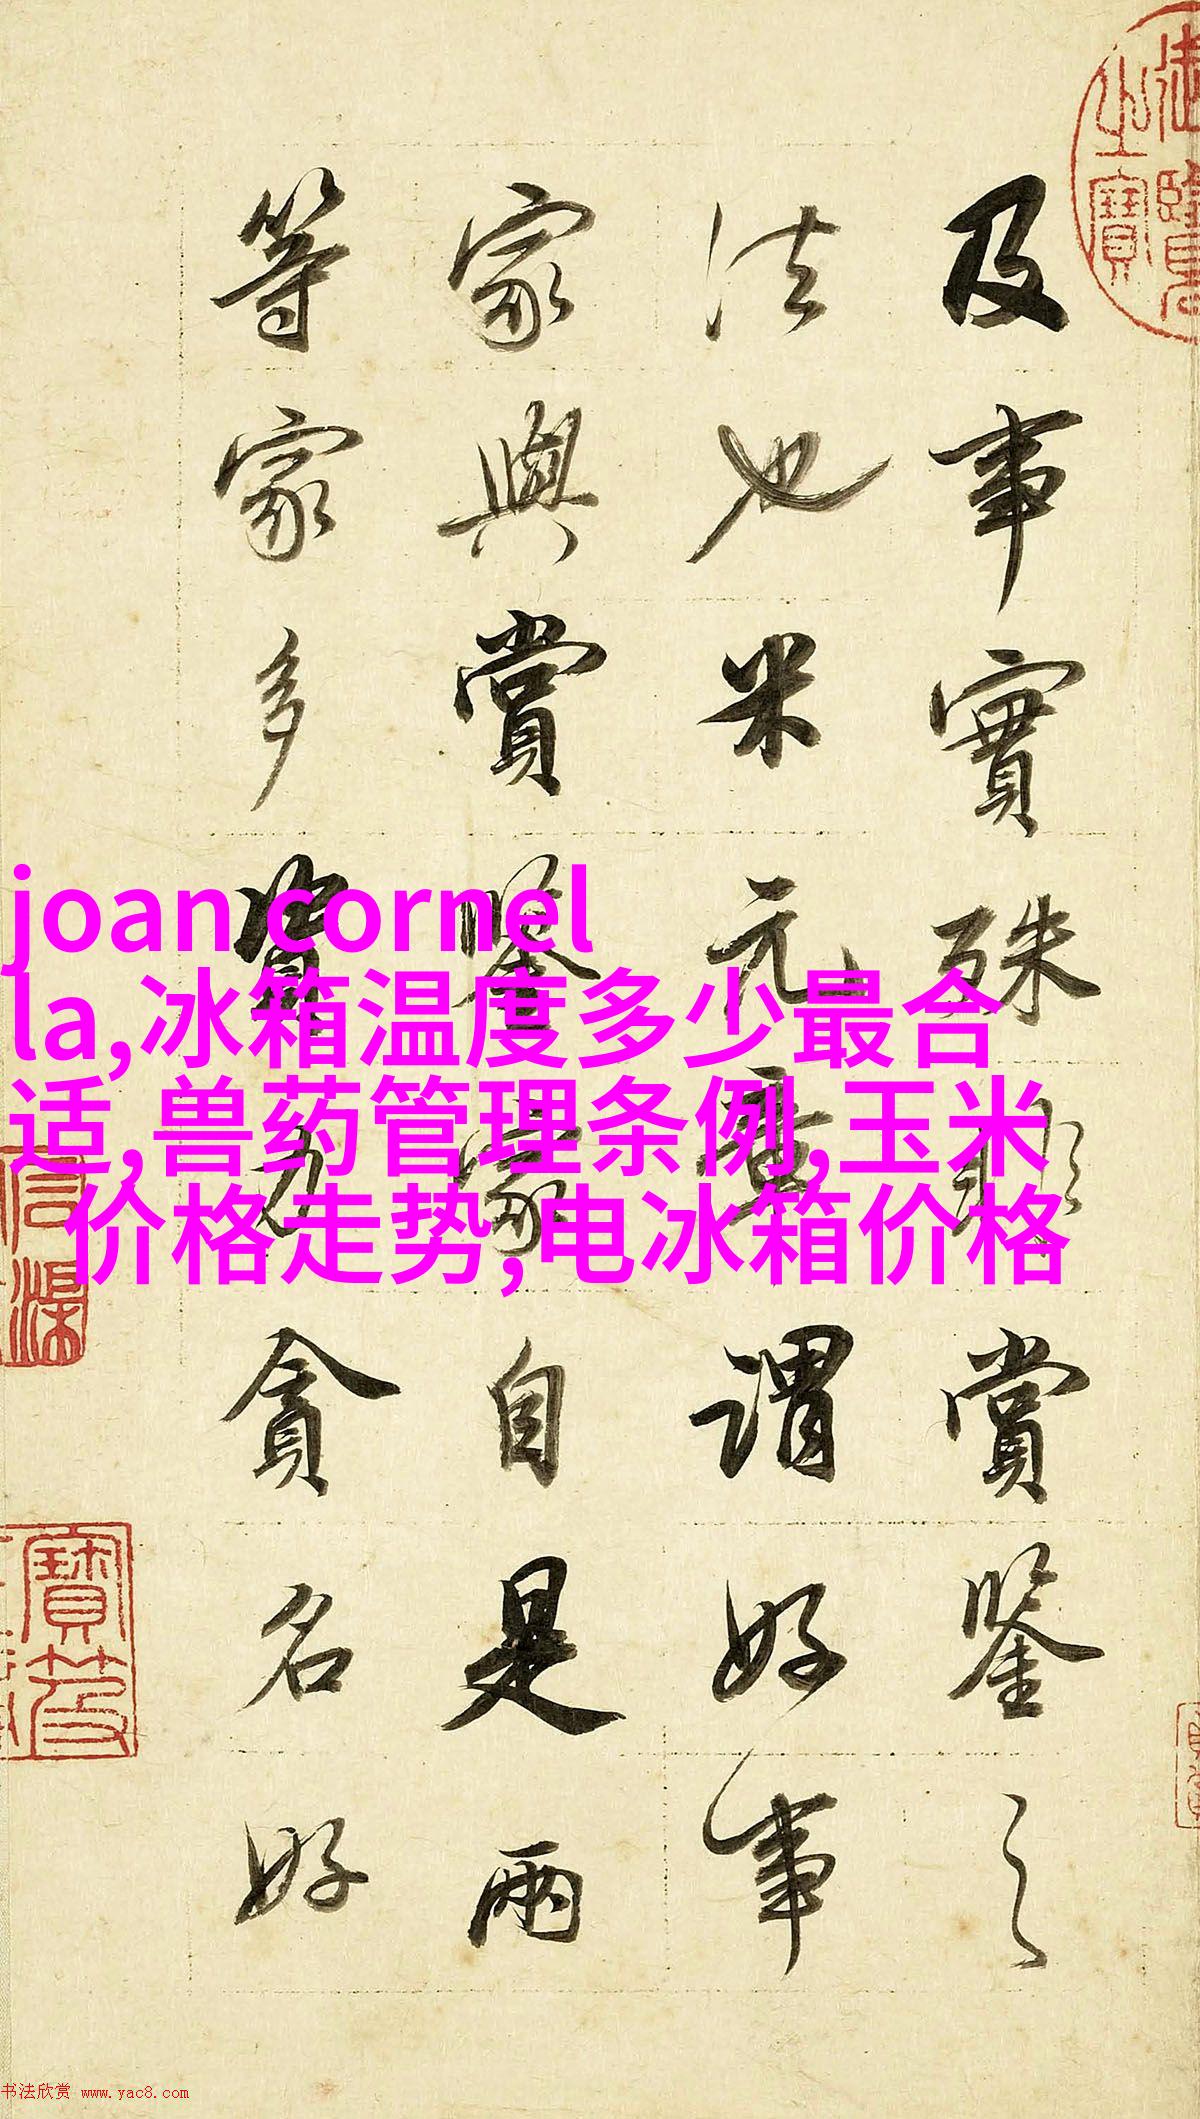 及事實殊賞鑒之
法也米元章謂好事
家與賞鑒家自是兩
等家多資力貪名好
joan cornel
la,冰箱温度多少最合
适,兽药管理条例,玉米
价格走势,电冰箱价格
寶笈
书法欣赏 www.yac8.com